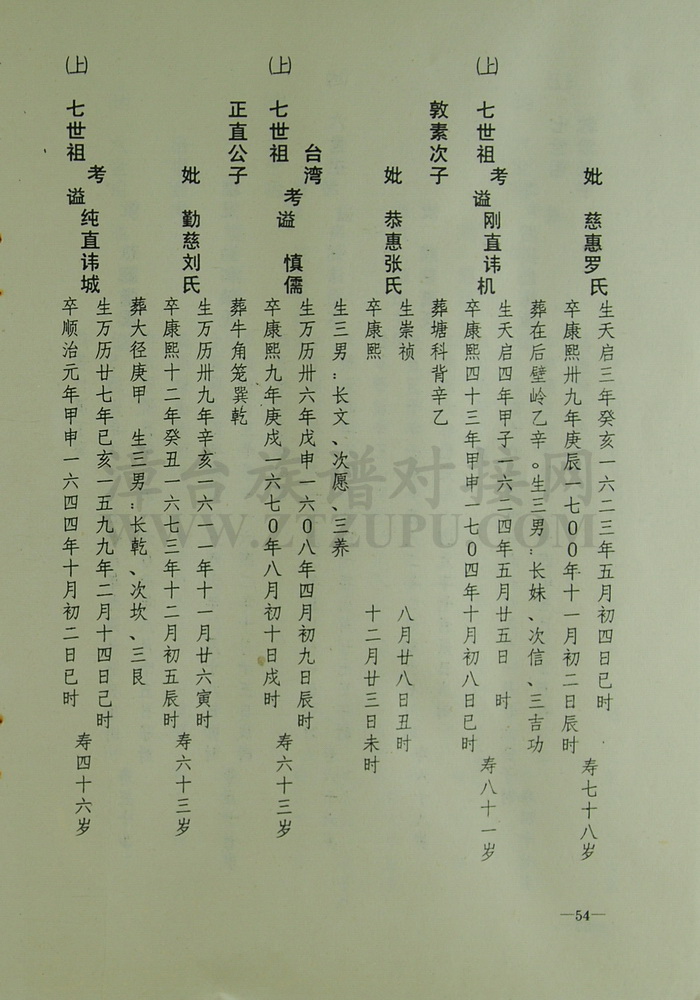 妣 慈惠罗氏
生天启三年癸亥一六二三年五月初四日巳时
卒康熙卅九年庚辰一七00年十一月初二日辰时
寿七十八岁
葬在后壁岭乙辛。生三男：长妹、次信、三吉功
(上) 七世祖 考谥刚直讳机
生天启四年甲子一六二四年五月廿五日 时
卒康熙四十三年甲申一七0四年十月初八日巳时
寿八十一岁
敦素次子
葬塘科背辛乙
妣 恭惠张氏
生崇祯 八月廿八日丑时
卒康熙 十二月廿三日未时
生三男：长文、次愿、三养
台湾
(上) 七世祖 考谥 慎儒
生万历卅六年戊申一六0八年四月初九日辰时
卒康熙九年庚戌一六七0年八月初十日戌时
寿六十三岁
正直公子
葬牛角笼巽乾
妣 勤慈刘氏
生万历卅九年辛亥一六一一年十一月廿六寅时
卒康熙十二年癸丑一六七三年十二月初五辰时
寿六十三岁
葬大径庚甲 生三男：长乾、次坎、三艮
(上) 七世祖 考谥纯直讳城
生万历廿七年已亥一五九九年二月十四日已时
卒顺治元年甲申一六四四年十月初二日已时
寿四十六岁
—54—
洋台族谱对接网
WWW.ZTZUPU.COM